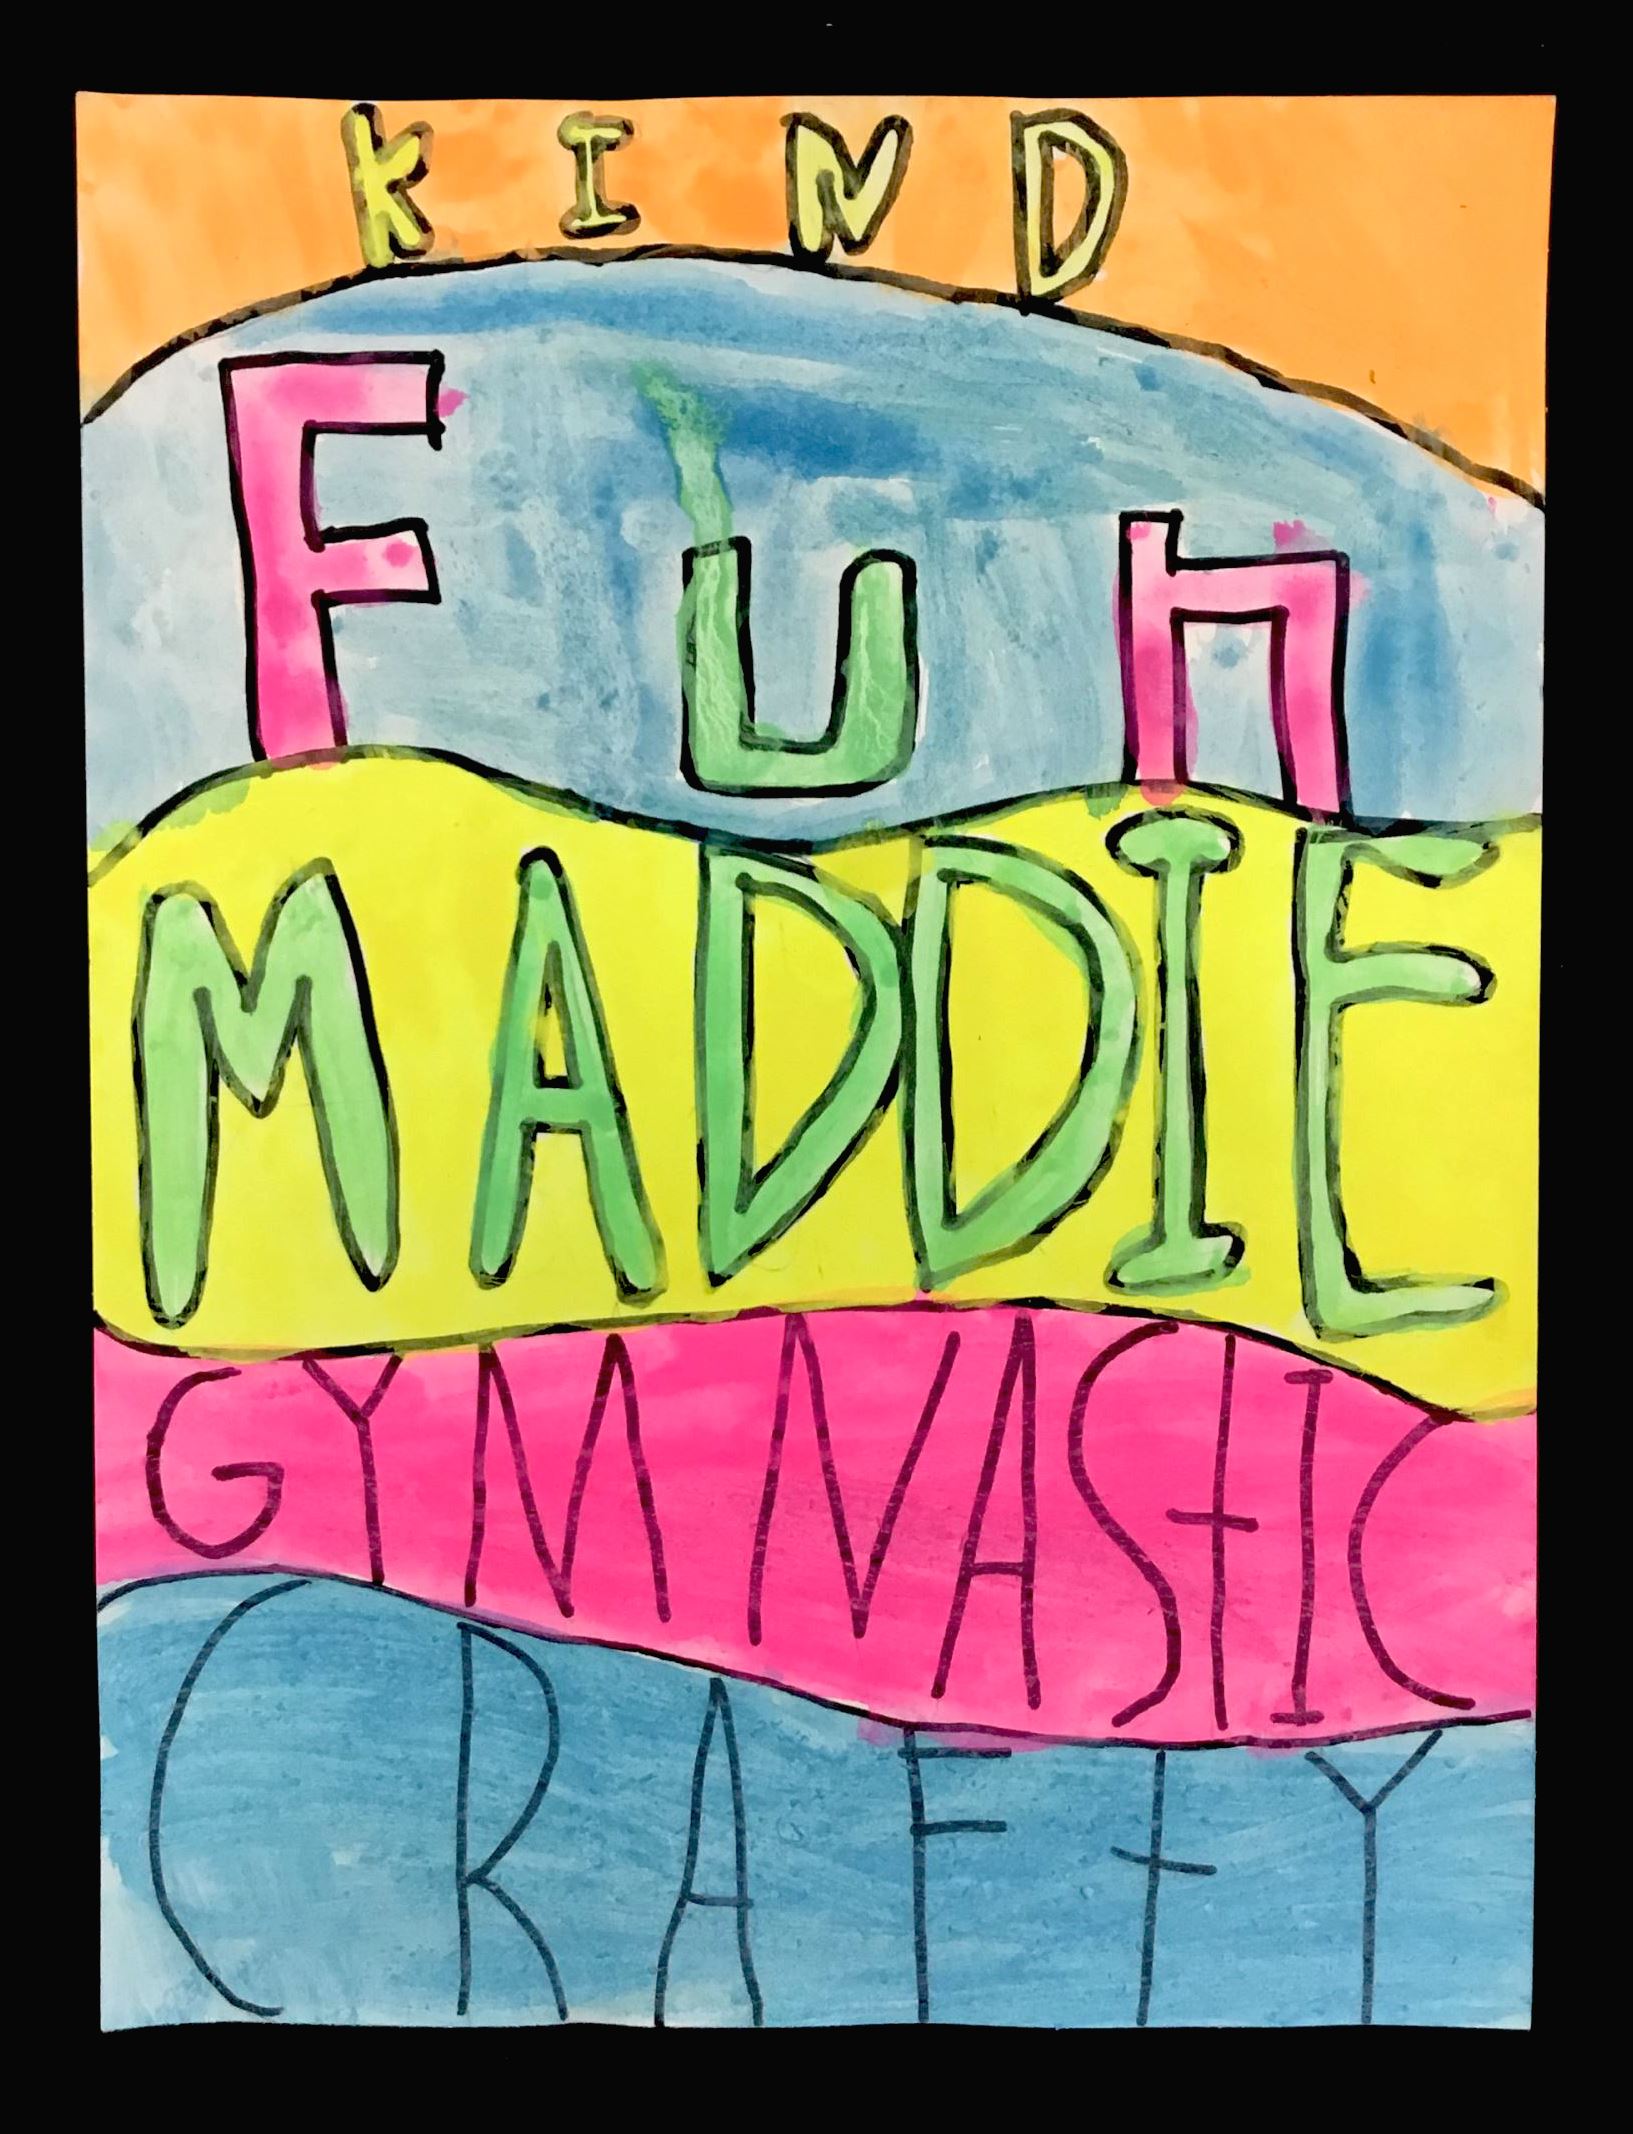 KIND
Fun
MADDIE
GYMNAStIC
CRAFtY